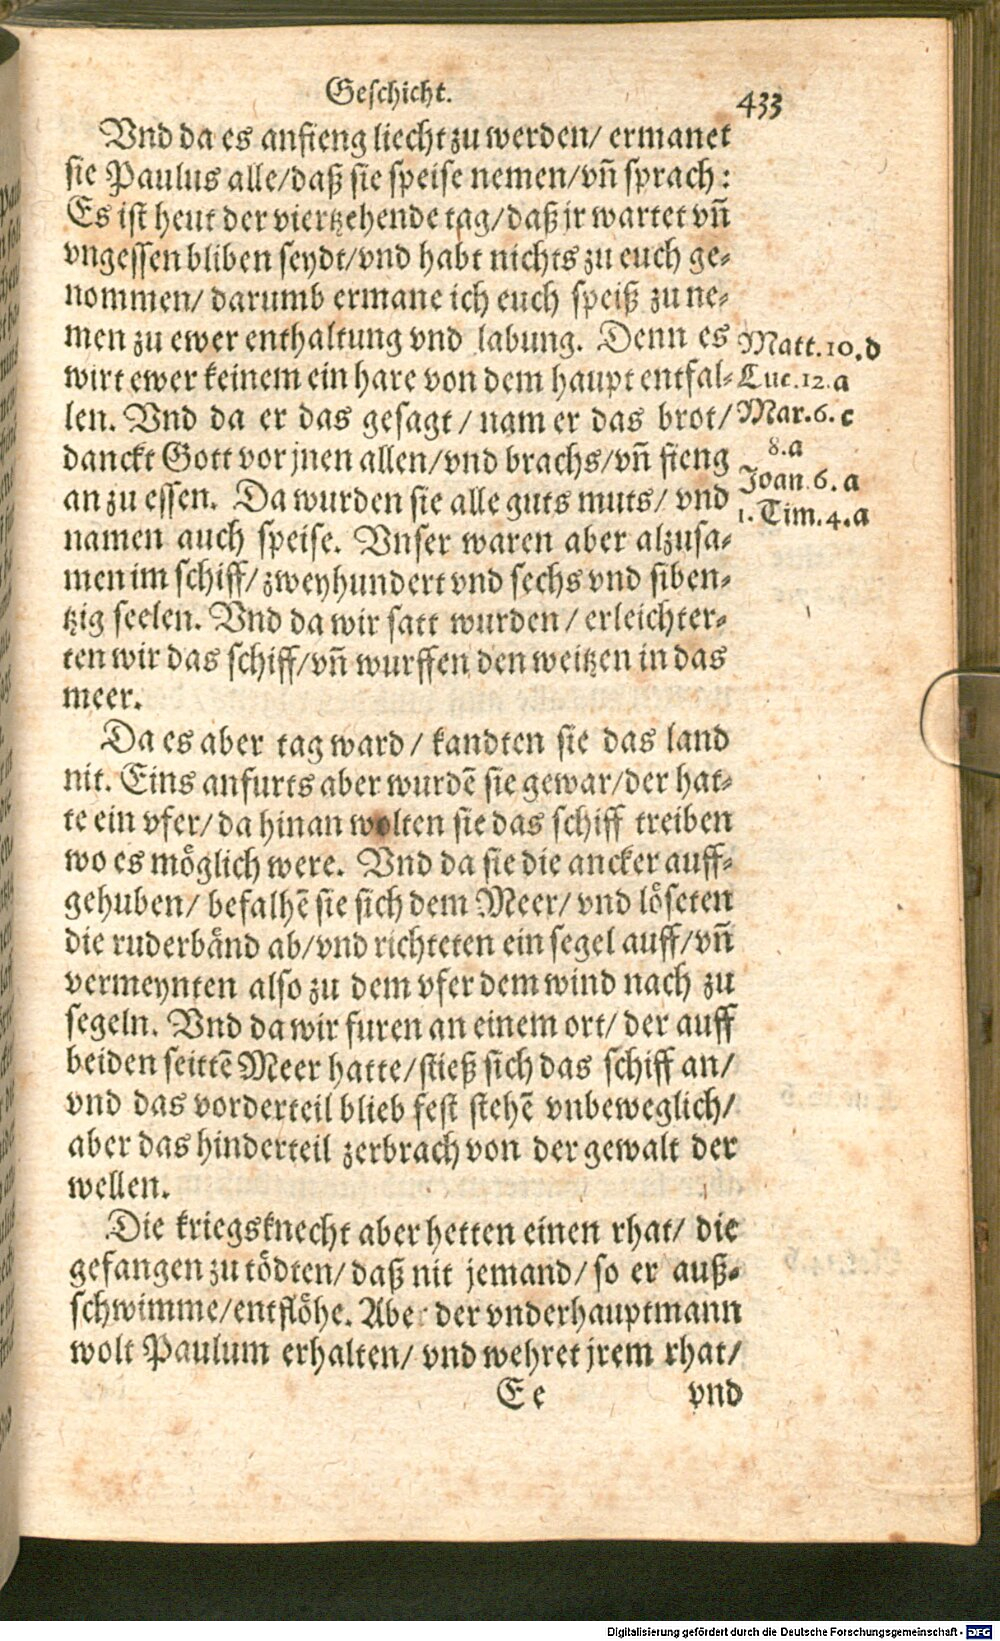 Geschicht. 433
Vnd da es anfieng liecht zu werden/ ermanet
sie Paulus alle/daß sie speise nemen/vñ sprach:
Es ist heut der viertzehende tag/daß jr wartet vñ
vngessen bliben seydt/vnd habt nichts zu euch ge-
nommen/ darumb ermane ich euch speiß zu ne-
men zu ewer enthaltung vnd labung. Denn es
wirt ewer keinem ein hare von dem haupt entfal-
len. Vnd da er das gesagt/ nam er das brot/
danckt Gott vor jnen allen/vnd brachs/vñ fieng
an zu essen. Da wurden sie alle guts muts/ vnd
namen auch speise. Vnser waren aber alzusa-
men im schiff/ zweyhundert vnd sechs vnd siben-
tzig seelen. Vnd da wir satt wurden/ erleichter-
ten wir das schiff/vñ wurffen den weitzen in das
meer.
Matt.10.d
Luc.12.a
Mar.6.c
8.a
Joan.6.a
1.Tim.4.a
Da es aber tag ward/ kandten sie das land
nit. Eins anfurts aber wurdē sie gewar/der hat-
te ein vfer/ da hinan wolten sie das schiff treiben
wo es möglich were. Vnd da sie die ancker auff-
gehuben/ befalhē sie sich dem Meer/ vnd löseten
die ruderbänd ab/vnd richteten ein segel auff/vñ
vermeynten also zu dem vfer dem wind nach zu
segeln. Vnd da wir furen an einem ort/ der auff
beiden seittē Meer hatte/stieß sich das schiff an/
vnd das vorderteil blieb fest stehē vnbeweglich/
aber das hinderteil zerbrach von der gewalt der
wellen.
Die kriegsknecht aber hetten einen rhat/ die
gefangen zu tödten/ daß nit jemand/ so er auß-
schwimme/entflöhe. Aber der vnderhauptmann
wolt Paulum erhalten/ vnd wehret jrem rhat/
E e vnd
Digitalisierung gefördert durch die Deutsche Forschungsgemeinschaft - DFG